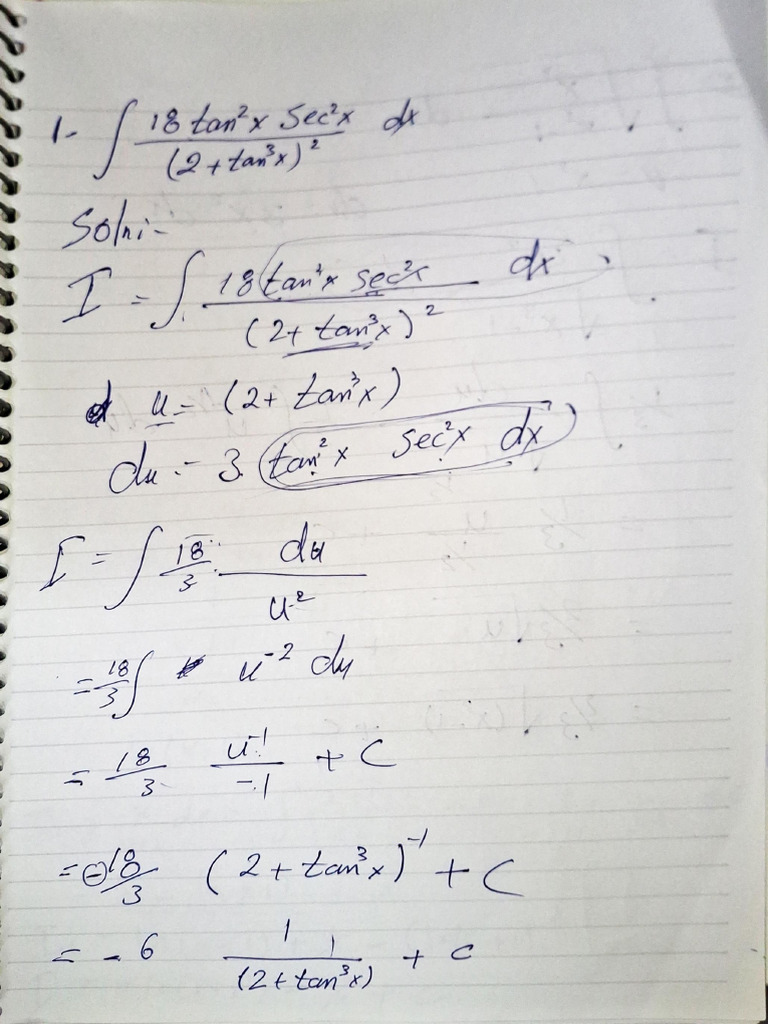 1- ∫ 18 tan²x Sec²x / (2 + tan³x)² dx
Soln:-
I = ∫ 18 tan²x sec²x / (2 + tan³x)² dx
u = (2 + tan³x)
du = 3 tan²x Sec²x dx
I = ∫ 18/3 du / u²
= 18/3 ∫ u⁻² du
= 18/3 u⁻¹/-1 + C
= -18/3 (2 + tan³x)⁻¹ + C
= -6 1/(2 + tan³x) + c